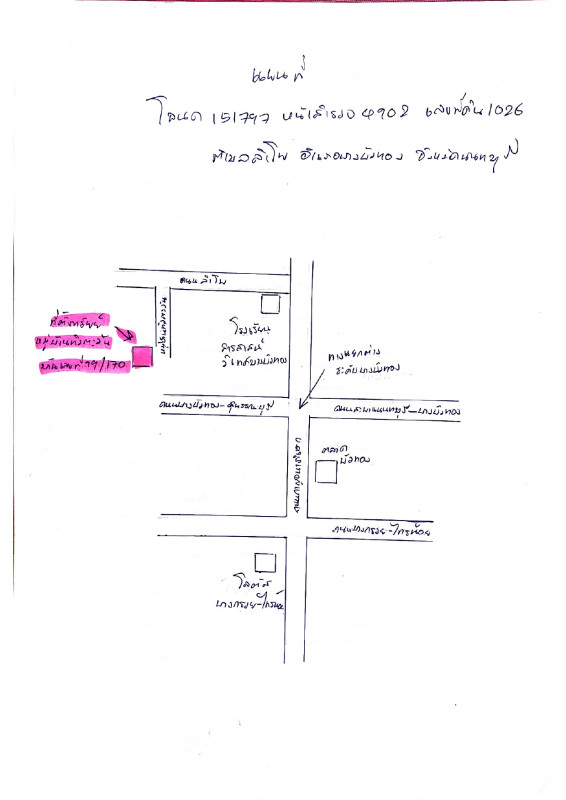 แผนที่
โฉนด 151797 หน้าสำรวจ 4902 เลขที่ดิน 1026
ตำบลลำโพ อำเภอบางบัวทอง จังหวัดนนทบุรี
ถนนลำโพ
ที่ตั้งทรัพย์
บ้านเลขที่ 79/170
โรงเรียน
สารสาสน์
วิเทศบางบัวทอง
ทางแยกต่าง
ระดับบางบัวทอง
ถนนบางบัวทอง-สุพรรณบุรี
ถนนสะพานนนทบุรี-บางบัวทอง
ถนนกาญจนาภิเษก
ตลาด
บัวทอง
ถนนบางกรวย-ไทรน้อย
โลตัส
บางกรวย-ไทรน้อย